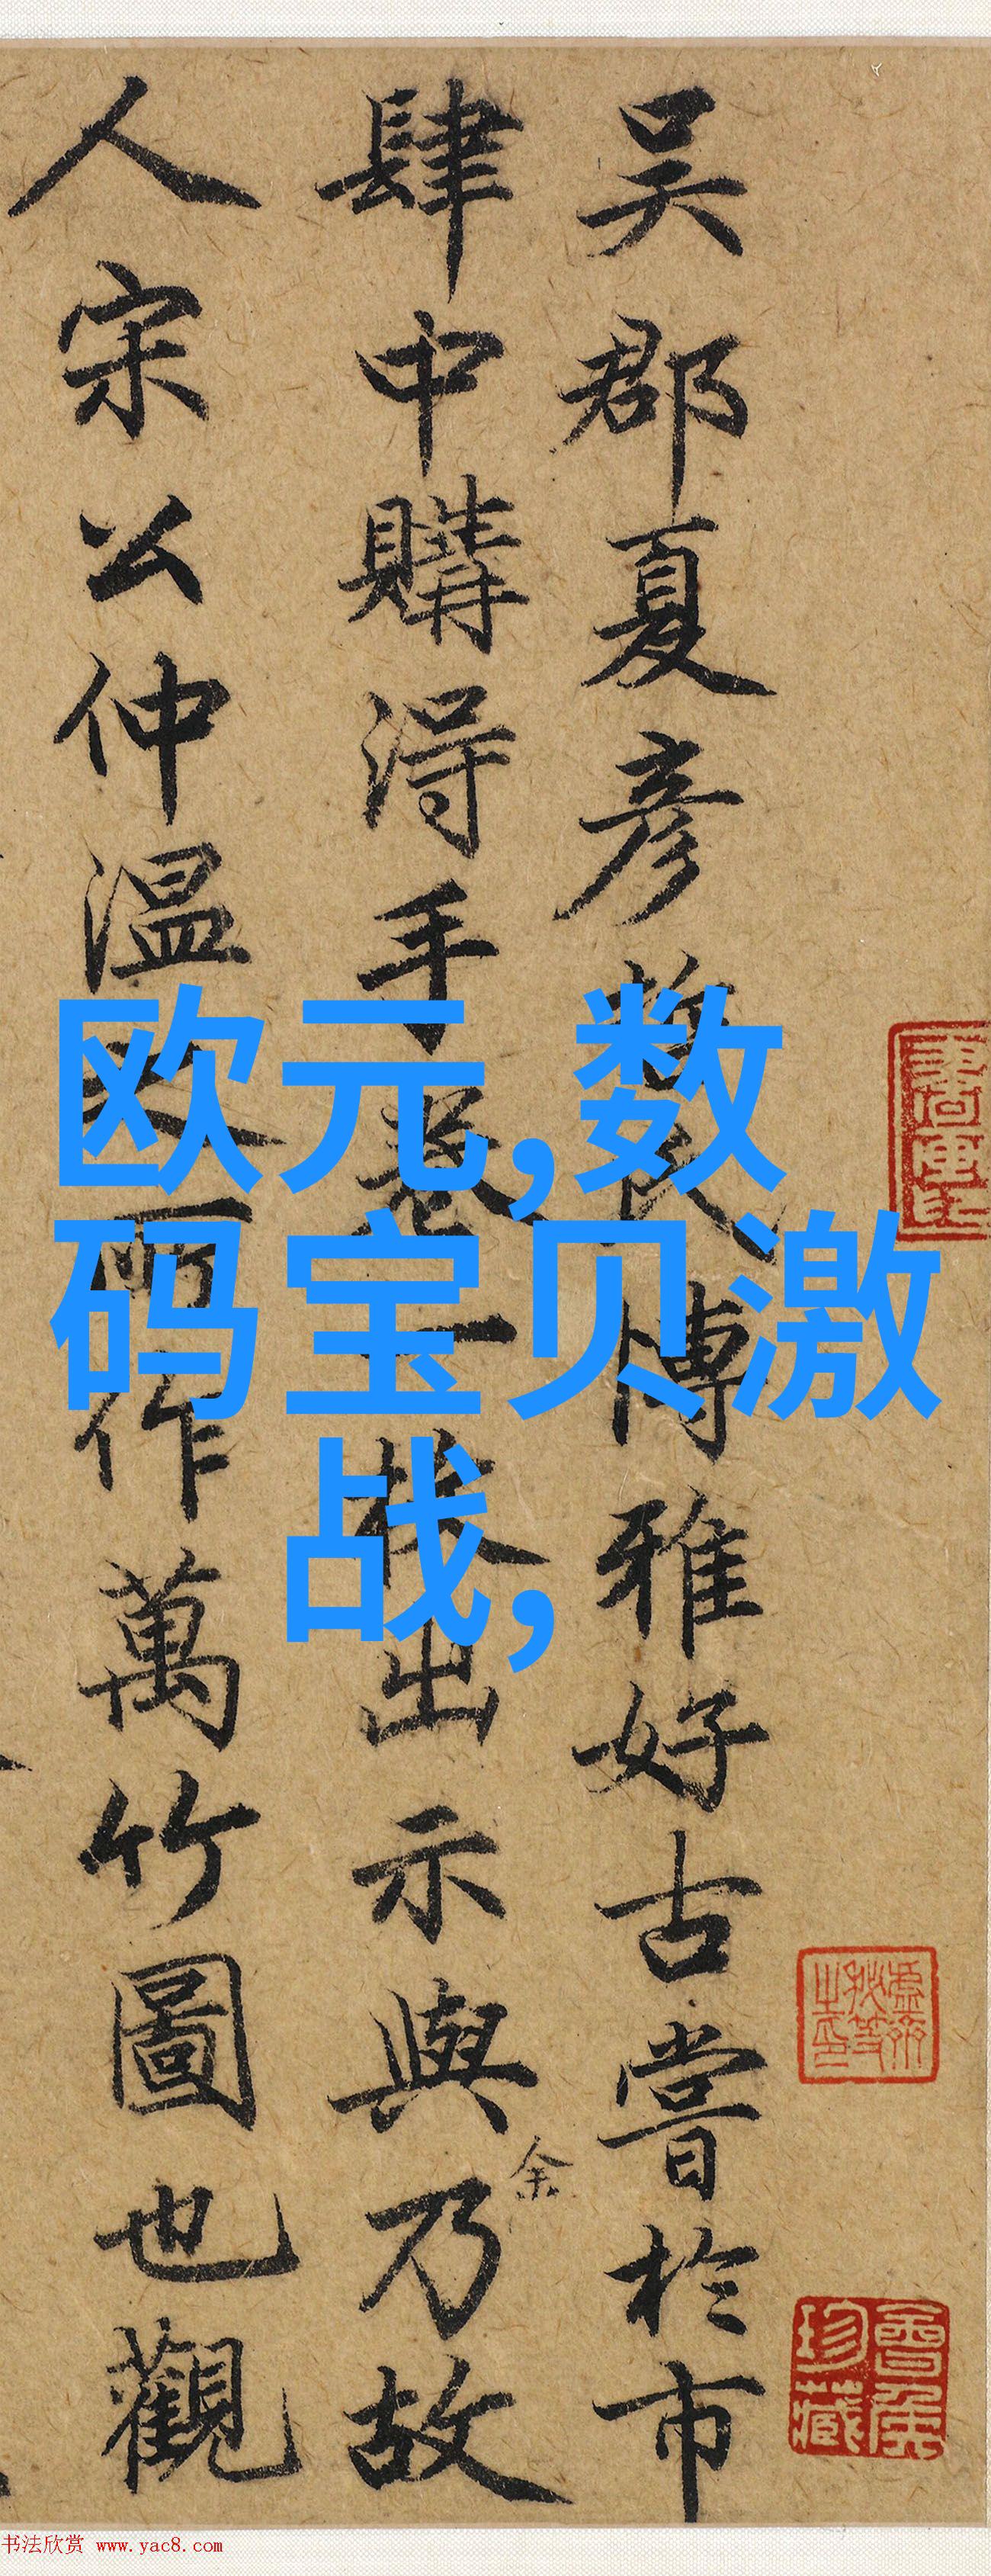 吴郡夏彦博雅好古嘗於市
肆中購得手一出示與乃故
余
人宋公仲温作萬竹圖也觀
欧元,数
码宝贝激
战,
珍藏
书法欣赏 www.yac8.com